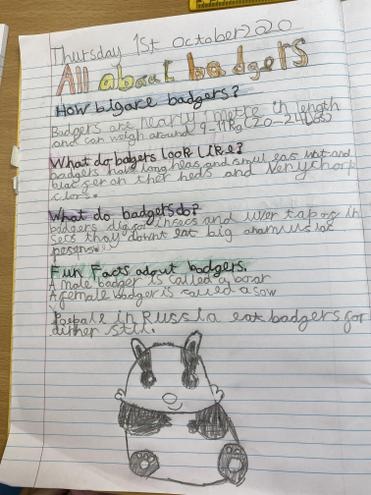 Thursday 1st October 2020
All about badgers
How big are badgers?
Badgers are nearly 1 metre in length
and can weigh around 9-11Kg (20-24Lbs)
What do badgers Look Like?
badgers have long heas and smul ears wit and
blac ser on ther heds and very shorp
clors.
What do badgers do?
badgers dig
in
sets thay dohnt eat big
Fun Facts adout badgers.
A male badger is called a boar
A female badger is called a sow
Peepale in Russia eat badgers for
dinner still.